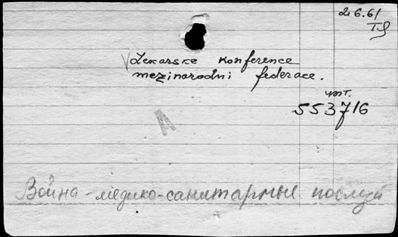 21.6.61
Lekarske konference
mezinarodni federace.
чит.
553716
A
Война - медико-санитарные послед